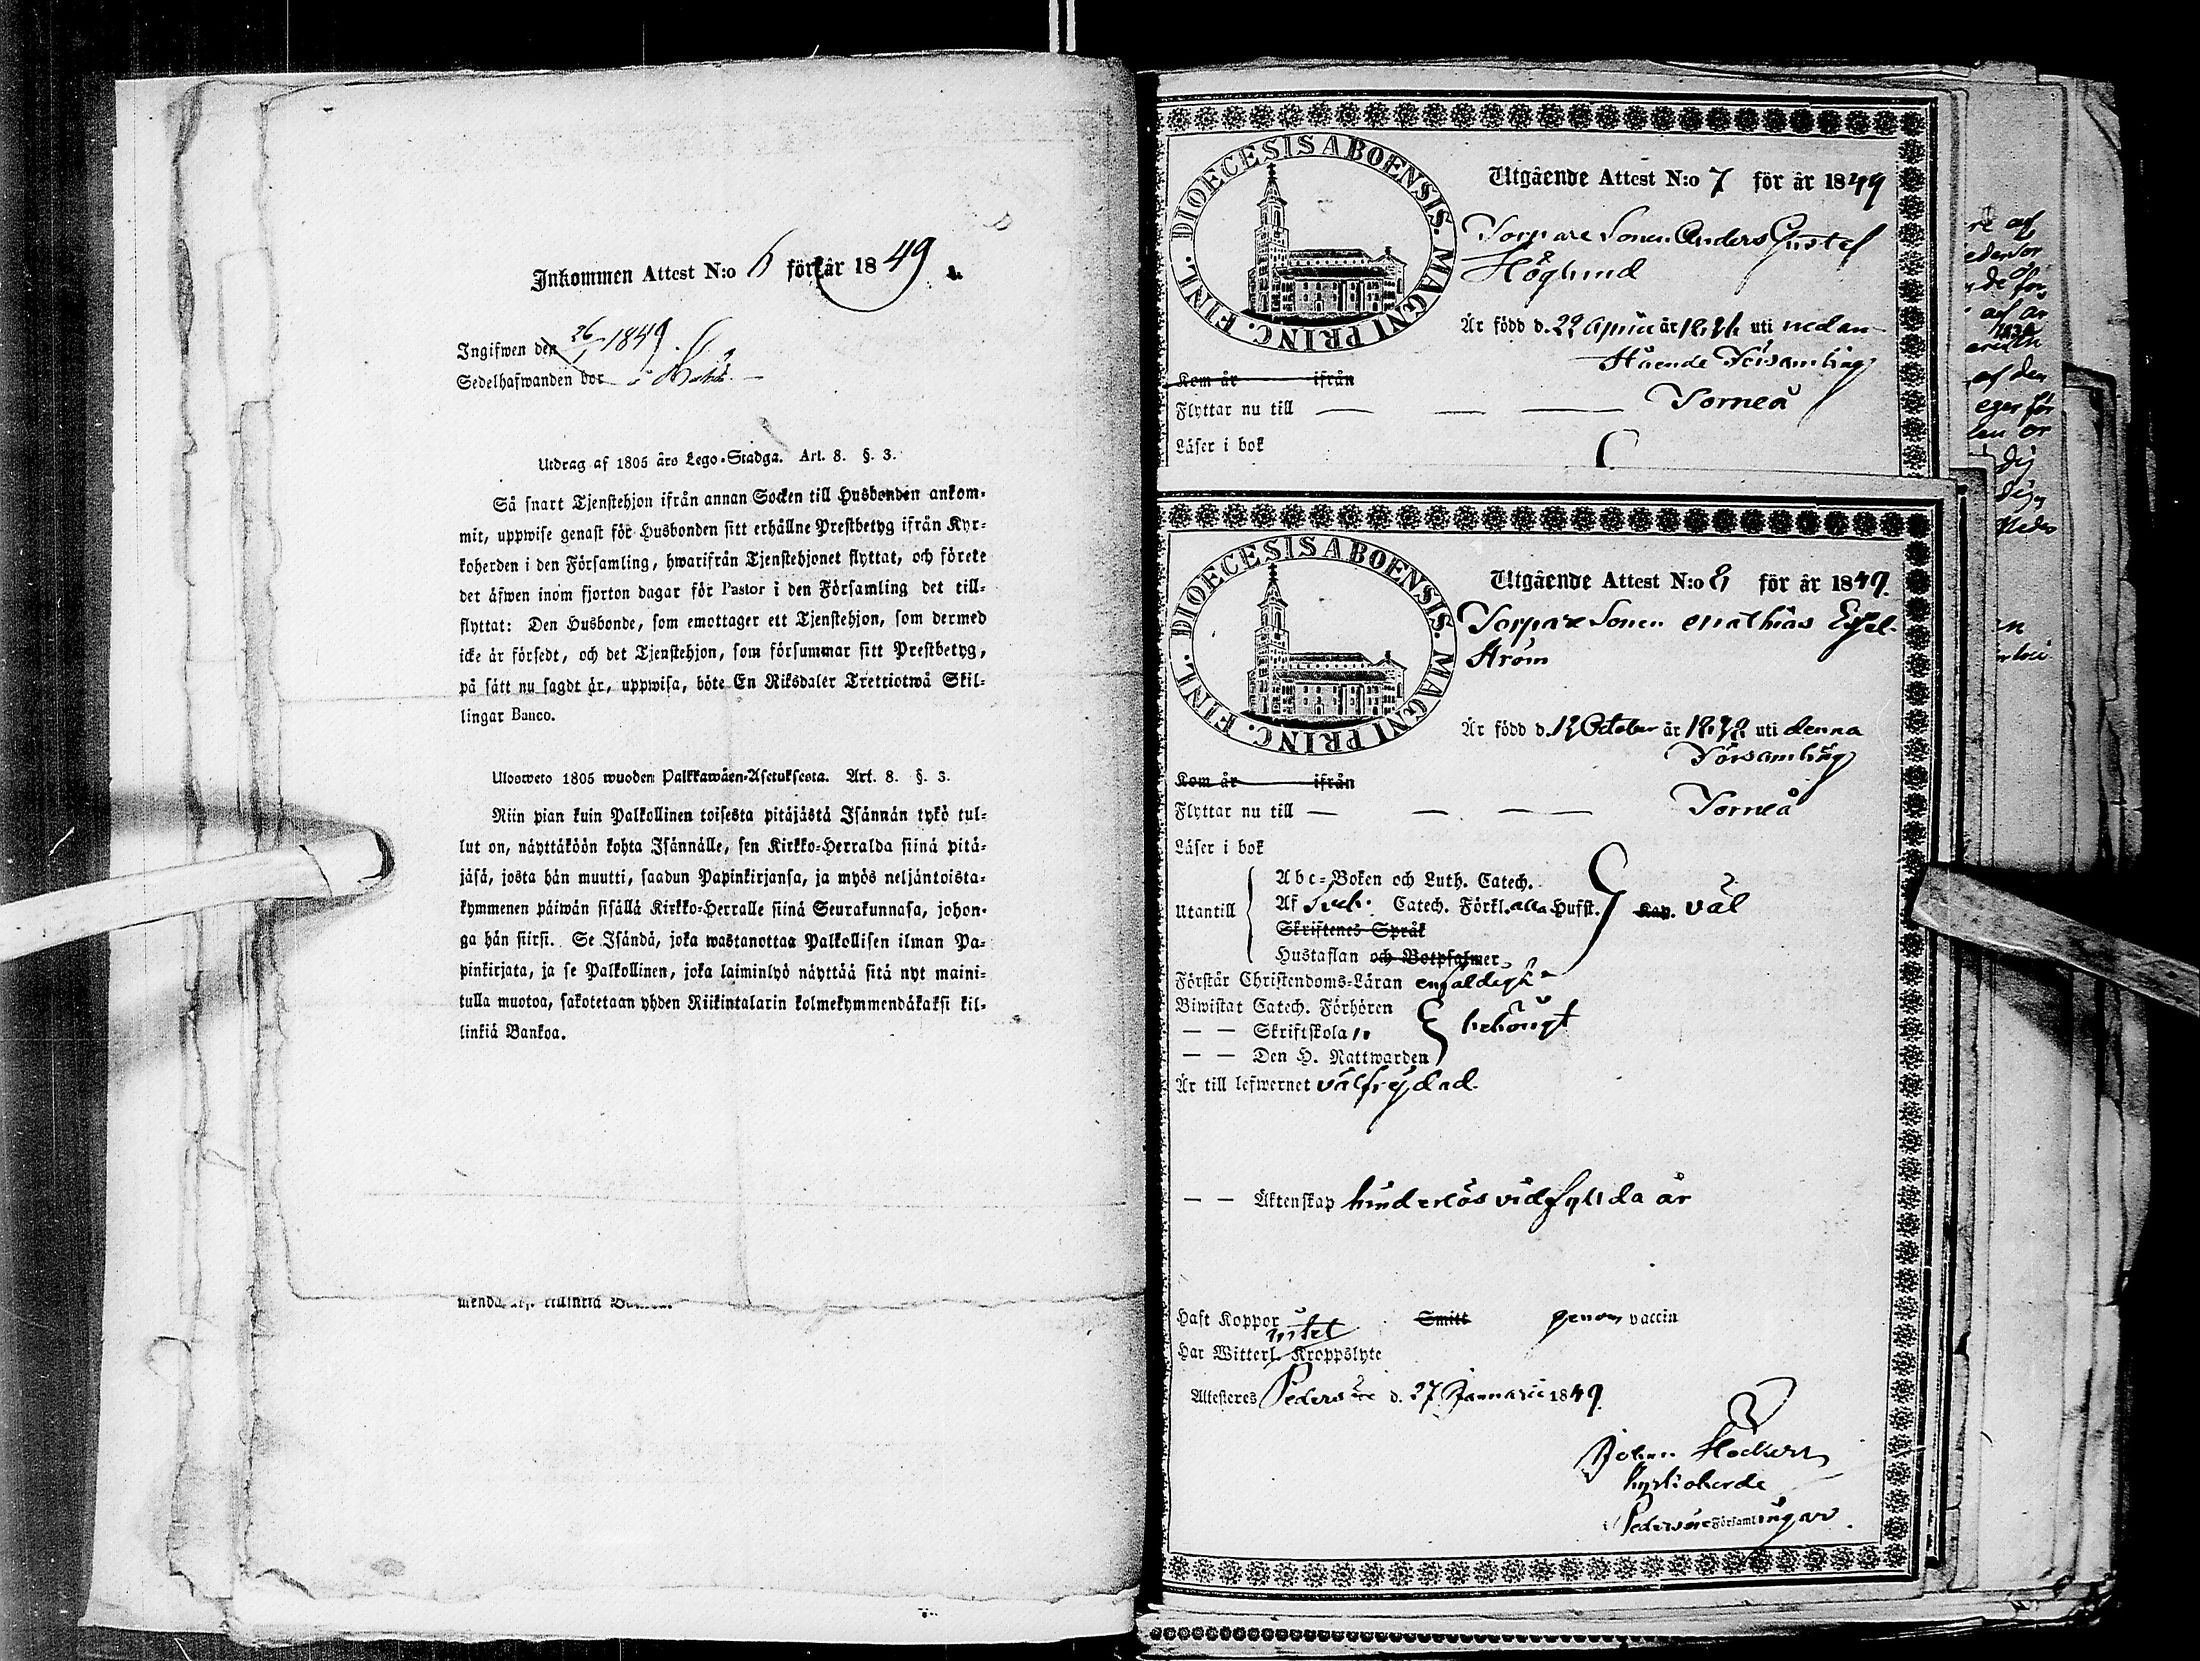 Inkommen Attest N:o 6 för år 1849.
Ingifwen den 26/1 1849
Sedelhafwanden bor i
Utdrag af 1805 års Lego-Stadga. Art. 8. §. 3.
Så snart Tjenstehjon ifrån annan Socken till Husbonden ankom-
mit, uppwise genast för Husbonden sitt erhållne Prestbetyg ifrån Kyr-
koherden i den Församling, hwarifrån Tjenstehjonet flyttat, och förete
det äfwen inom fjorton dagar för Pastor i den Församling det till-
flyttat: Den Husbonde, som emottager ett Tjenstehjon, som dermed
icke är försedt, och det Tjenstehjon, som försummar sitt Prestbetyg,
på sätt nu sagdt är, uppwisa, böte En Riksdaler Trettiotwå Skil-
lingar Banco.
Ulosweto 1805 wuoden Palkkawäen-Asetuksesta. Art. 8. §. 3.
Niin pian kuin Palkollinen toisesta pitäjästä Isännän tykö tul-
lut on, näyttäköön kohta Isännälle, sen Kirkko-Herralda siinä pitä-
jäsä, josta hän muutti, saadun Papinkirjansa, ja myös neljäntoista-
kymmenen päiwän sisällä Kirkko-Herralle siinä Seurakunnasa, johon-
ga hän siirsi. Se Isändä, joka wastanottaa Palkollisen ilman Pa-
pinkirjata, ja se Palkollinen, joka laiminlyö näyttää sitä nyt maini-
tulla muotoa, sakotetaan yhden Riikintalarin kolmekymmendäkaksi kil-
linkiä Bankoa.
DIOECESIS ABOENSIS. MAGNI PRINC. FINL.
Utgående Attest N:o 7 för år 1849
Torpare Sonen Anders Gustaf
Höglund
Är född d. 22 April år uti nedan
stående Församling
Kom år ifrån
Flyttar nu till — — — Torneå
Läser i bok
DIOECESIS ABOENSIS. MAGNI PRINC. FINL.
Utgående Attest N:o 8 för år 1849.
Torpare Sonen Mathias
ström
Är född d. October år uti denna
Församling
Kom år ifrån
Flyttar nu till — — — Torneå
Läser i bok
Utantill
Abc-Boken och Luth. Catech.
Af Catech. Förkl. alla Hufst. Kap. väl
Skriftenes Språk
Hustaflan och Botpsalmer
Förstår Christendoms-Läran enfaldigt
Biwistat Catech. Förhören
— — Skriftskolan behörigt
— — Den H. Nattwarden
Är till lefwernet välfrejdad.
— — Äktenskap hinderlös vid fyllda år
Haft Koppor Smitt genom vaccin
intet
Har Witterl. Kroppslyte
Attesteres Pedersöre d. 27 Januarii 1849.
Johan
Kyrkoherde
i Pedersöre Församlingar.